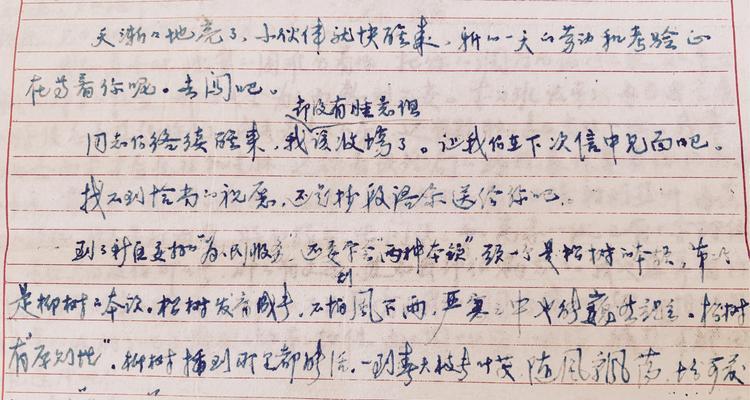 天渐渐地亮了，小伙伴就快醒来，新的一天的劳动和考验正
在等着你呢。去闯吧。
却没有睡意但
同志们继续醒来，我该收场了。让我们在下次信中见面吧。
找不到恰当的祝愿，还是抄段语录送给你吧。
到了科自要好"为人民服务"，还要学会"两种本领"，头一个是松树的本领，第二个
到
是柳树的本领。松树发育成长，不怕风下雨，严寒之中也能。松树
有"原则性"。柳树插到那里都能活，一到春天枝长叶茂，随风飘荡，十分可爱